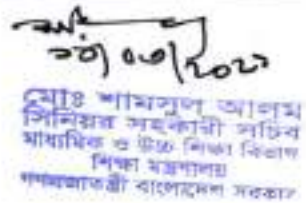 ২০২১
মোঃ শামসুল আলম
সিনিয়র সহকারী সচিব
মাধ্যমিক ও উচ্চ শিক্ষা বিভাগ
শিক্ষা মন্ত্রণালয়
গণপ্রজাতন্ত্রী বাংলাদেশ সরকার